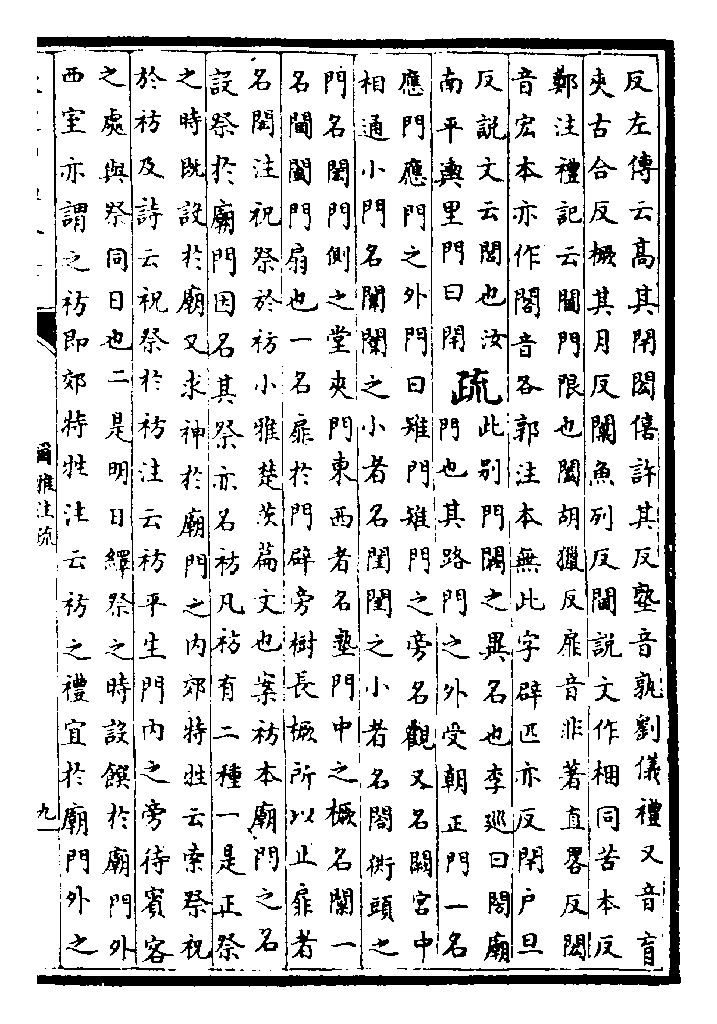 反左傳云高其閈閎僖許其反塾音孰劉儀禮又音育
夾古合反橛其月反闑魚列反閫說文作梱同苦本反
鄭注禮記云閫門限也闔胡獵反扉音非著直畧反閎
音宏本亦作閤音各郭注本無此字辟匹亦反閈户旦
反說文云閭也汝
南平輿里門曰閈
疏
此別門闕之異名也李廵曰閍廟
門也其路門之外受朝正門一名
應門應門之外門曰雉門雉門之旁名觀又名闕宫中
相通小門名闈闈之小者名閨閨之小者名閤衖頭之
門名閎門側之堂夾門東西者名塾門中之橛名闑一
名閫闔門扇也一名扉於門辟旁樹長橛所以止扉者
名閎注祝祭於祊小雅楚茨篇文也案祊本廟門之名
設祭於廟門因名其祭亦名祊凡祊有二種一是正祭
之時既設於廟又求神於廟門之内郊特牲云索祭祝
於祊及詩云祝祭於祊注云祊平生門内之旁待賓客
之處與祭同日也二是明日繹祭之時設饌於廟門外
西室亦謂之祊即郊特牲注云祊之禮宜於廟門外之
爾雅注疏
九